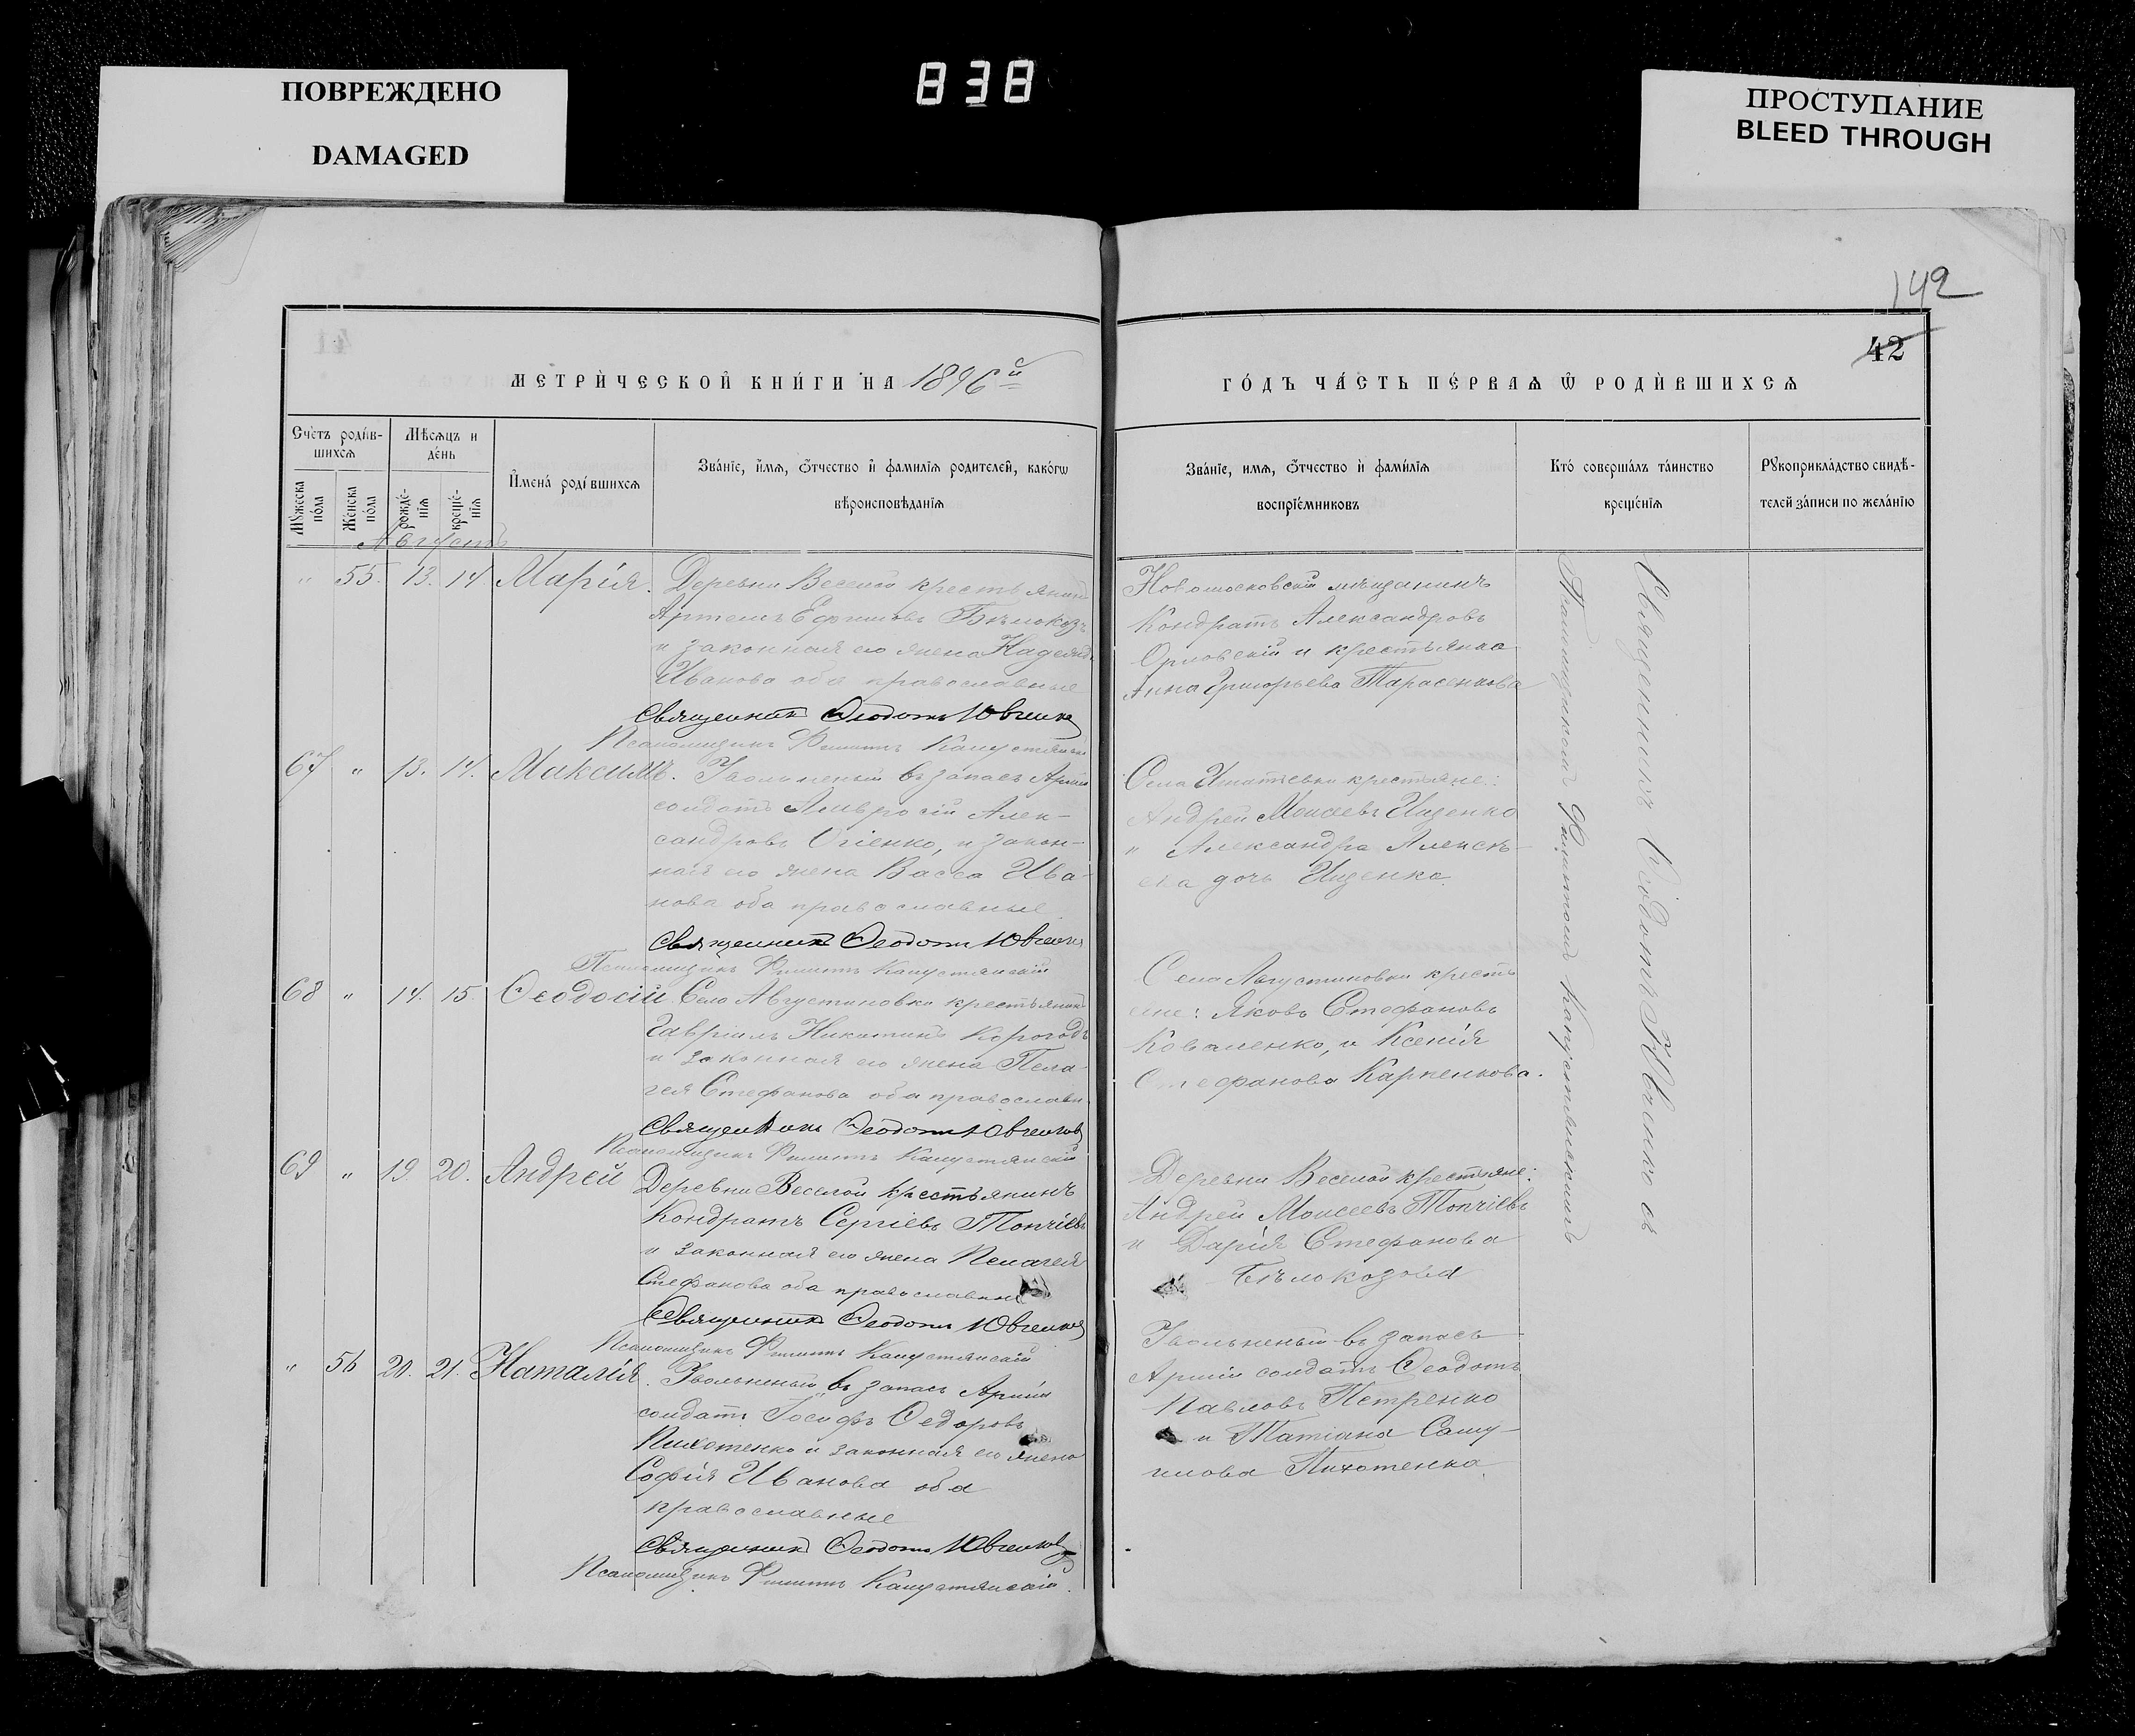 838
ПОВРЕЖДЕНО
DAMAGED
ПРОСТУПАНИЕ
BLEED THROUGH
142
42
МЕТРИ́ЧЕСКОЙ КНИ́ГИ НА 1896й
ГО́ДЪ ЧА́СТЬ ПЕ́РВАѦ Ѿ РОДИ́ВШИХСѦ
Сче́тъ роди́в-
шихсѧ
Мѣ́сѧцъ и
де́нь
Мꙋ́жеска
по́ла
Же́нска
по́ла
рожде́-
нїѧ
креще́-
нїѧ
И҆мена́ роди́вшихсѧ
Зва́нїе, и҆́мѧ, ѻ҆́тчество и҆ фами́лїѧ родителей, како́гѡ
вѣроисповѣданїѧ
Зва́нїе, имѧ, ѻ҆́тчество и҆ фами́лїѧ
воспрїе́мниковъ
Кто́ соверша́лъ та́инство
креще́нїѧ
Рꙋкоприкла́дство свидѣ́-
телей за́писи по жела́нїю
Августъ
" 55. 13. 14. Марія. Деревни Веселой крестьянинъ
Артемъ Ефимовъ Бѣлокозъ
и законная его жена Надежда
Иванова оба православные
Священникъ Ѳеодотъ Ювченко
Псаломщикъ Филиппъ Капустянскій
Новомосковскій мѣщанинъ
Кондратъ Александровъ
Орловскій и крестьянка
Анна Григорьева Тарасенкова
67 " 13. 14. Максимъ. Уволенный въ запасъ Арміи
солдатъ Амвросій Алек-
сандровъ Огіенко, и закон-
ная его жена Васса Ива-
нова оба православные
Священникъ Ѳеодотъ Ювченко
Псаломщикъ Филиппъ Капустянскій
Села Игнатьевки крестьяне:
Андрей Моисеевъ Ищенко
и Александра Алексѣ-
ева дочь Ищенко.
68 " 14. 15. Ѳеодосій. Села Августиновки крестьянинъ
Гавріилъ Никитинъ Корогодъ
и законная его жена Пела-
гея Стефанова оба православн.
Священникъ Ѳеодотъ Ювченко
Псаломщикъ Филиппъ Капустянскій
Села Августиновки кресть
яне: Яковъ Стефановъ
Коваленко, и Ксенія
Стефанова Карпенкова.
69 " 19. 20. Андрей Деревни Веселой крестьянинъ
Кондратъ Сергіевъ Топчіевъ
и законная его жена Пелагея
Стефанова оба православные
Священникъ Ѳеодотъ Ювченко
Псаломщикъ Филиппъ Капустянскій
Деревни Веселой крестьяне:
Андрей Моисеевъ Топчіевъ
и Дарія Стефанова
Бѣлокозова
" 56 20. 21. Наталія. Уволенный въ запасъ Арміи
солдатъ Іосифъ Ѳедоровъ
Пихотенко и законная его жена
Софія Иванова оба
православные
Священникъ Ѳеодотъ Ювченко
Псаломщикъ Филиппъ Капустянскій.
Уволенный въ запасъ
Арміи солдатъ Ѳеодотъ
Павловъ Петренко
и Татіана Саму-
илова Пихотенко.
Священникъ Ѳеодотъ Ювченко съ
Псаломщикомъ Филиппомъ Капустянскимъ